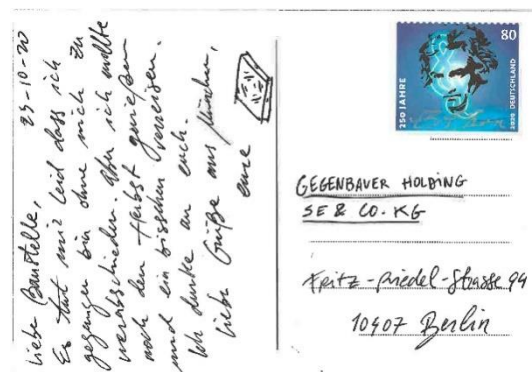 Liebe Baustelle, 23-10-20
Es tut mir leid dass ich
gegangen bin ohne mich zu
verabschieden. Aber ich wollte
noch den Herbst genießen
und ein bisschen verreisen.
Ich denke an euch.
Liebe Grüße aus München,
eure
80
250 JAHRE
2020 DEUTSCHLAND
GEGENBAUER HOLDING
SE & CO. KG
Fritz-Riedel-Strasse
10407 Berlin